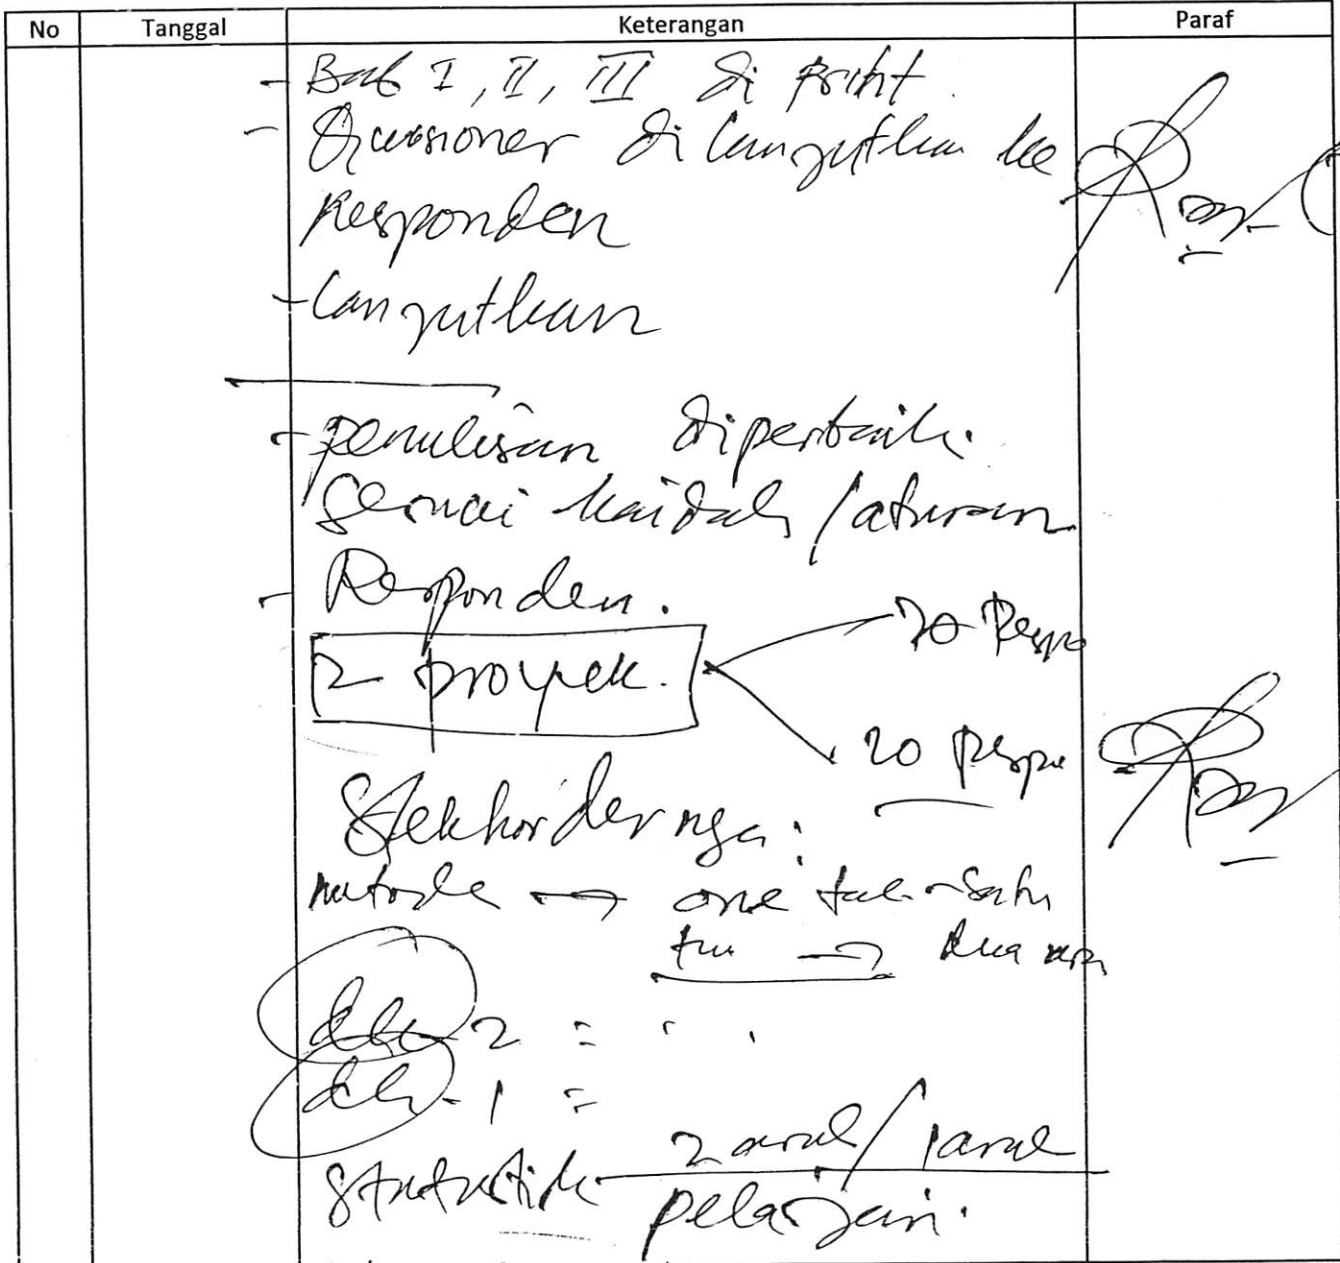 No Tanggal Keterangan Paraf
- Bab I, II, III di print.
- Quesioner di lanjutkan ke
Responden
- Lanjutkan
- penulisan diperbaiki
sesuai kaidah / aturan
- Responden.
20 Respo
2 proyek.
20 Respo
Stekhordernya:
metode → one satu
→ dua
2 =
1 =
Statistik 2 arah / 1 arah
pelajari.